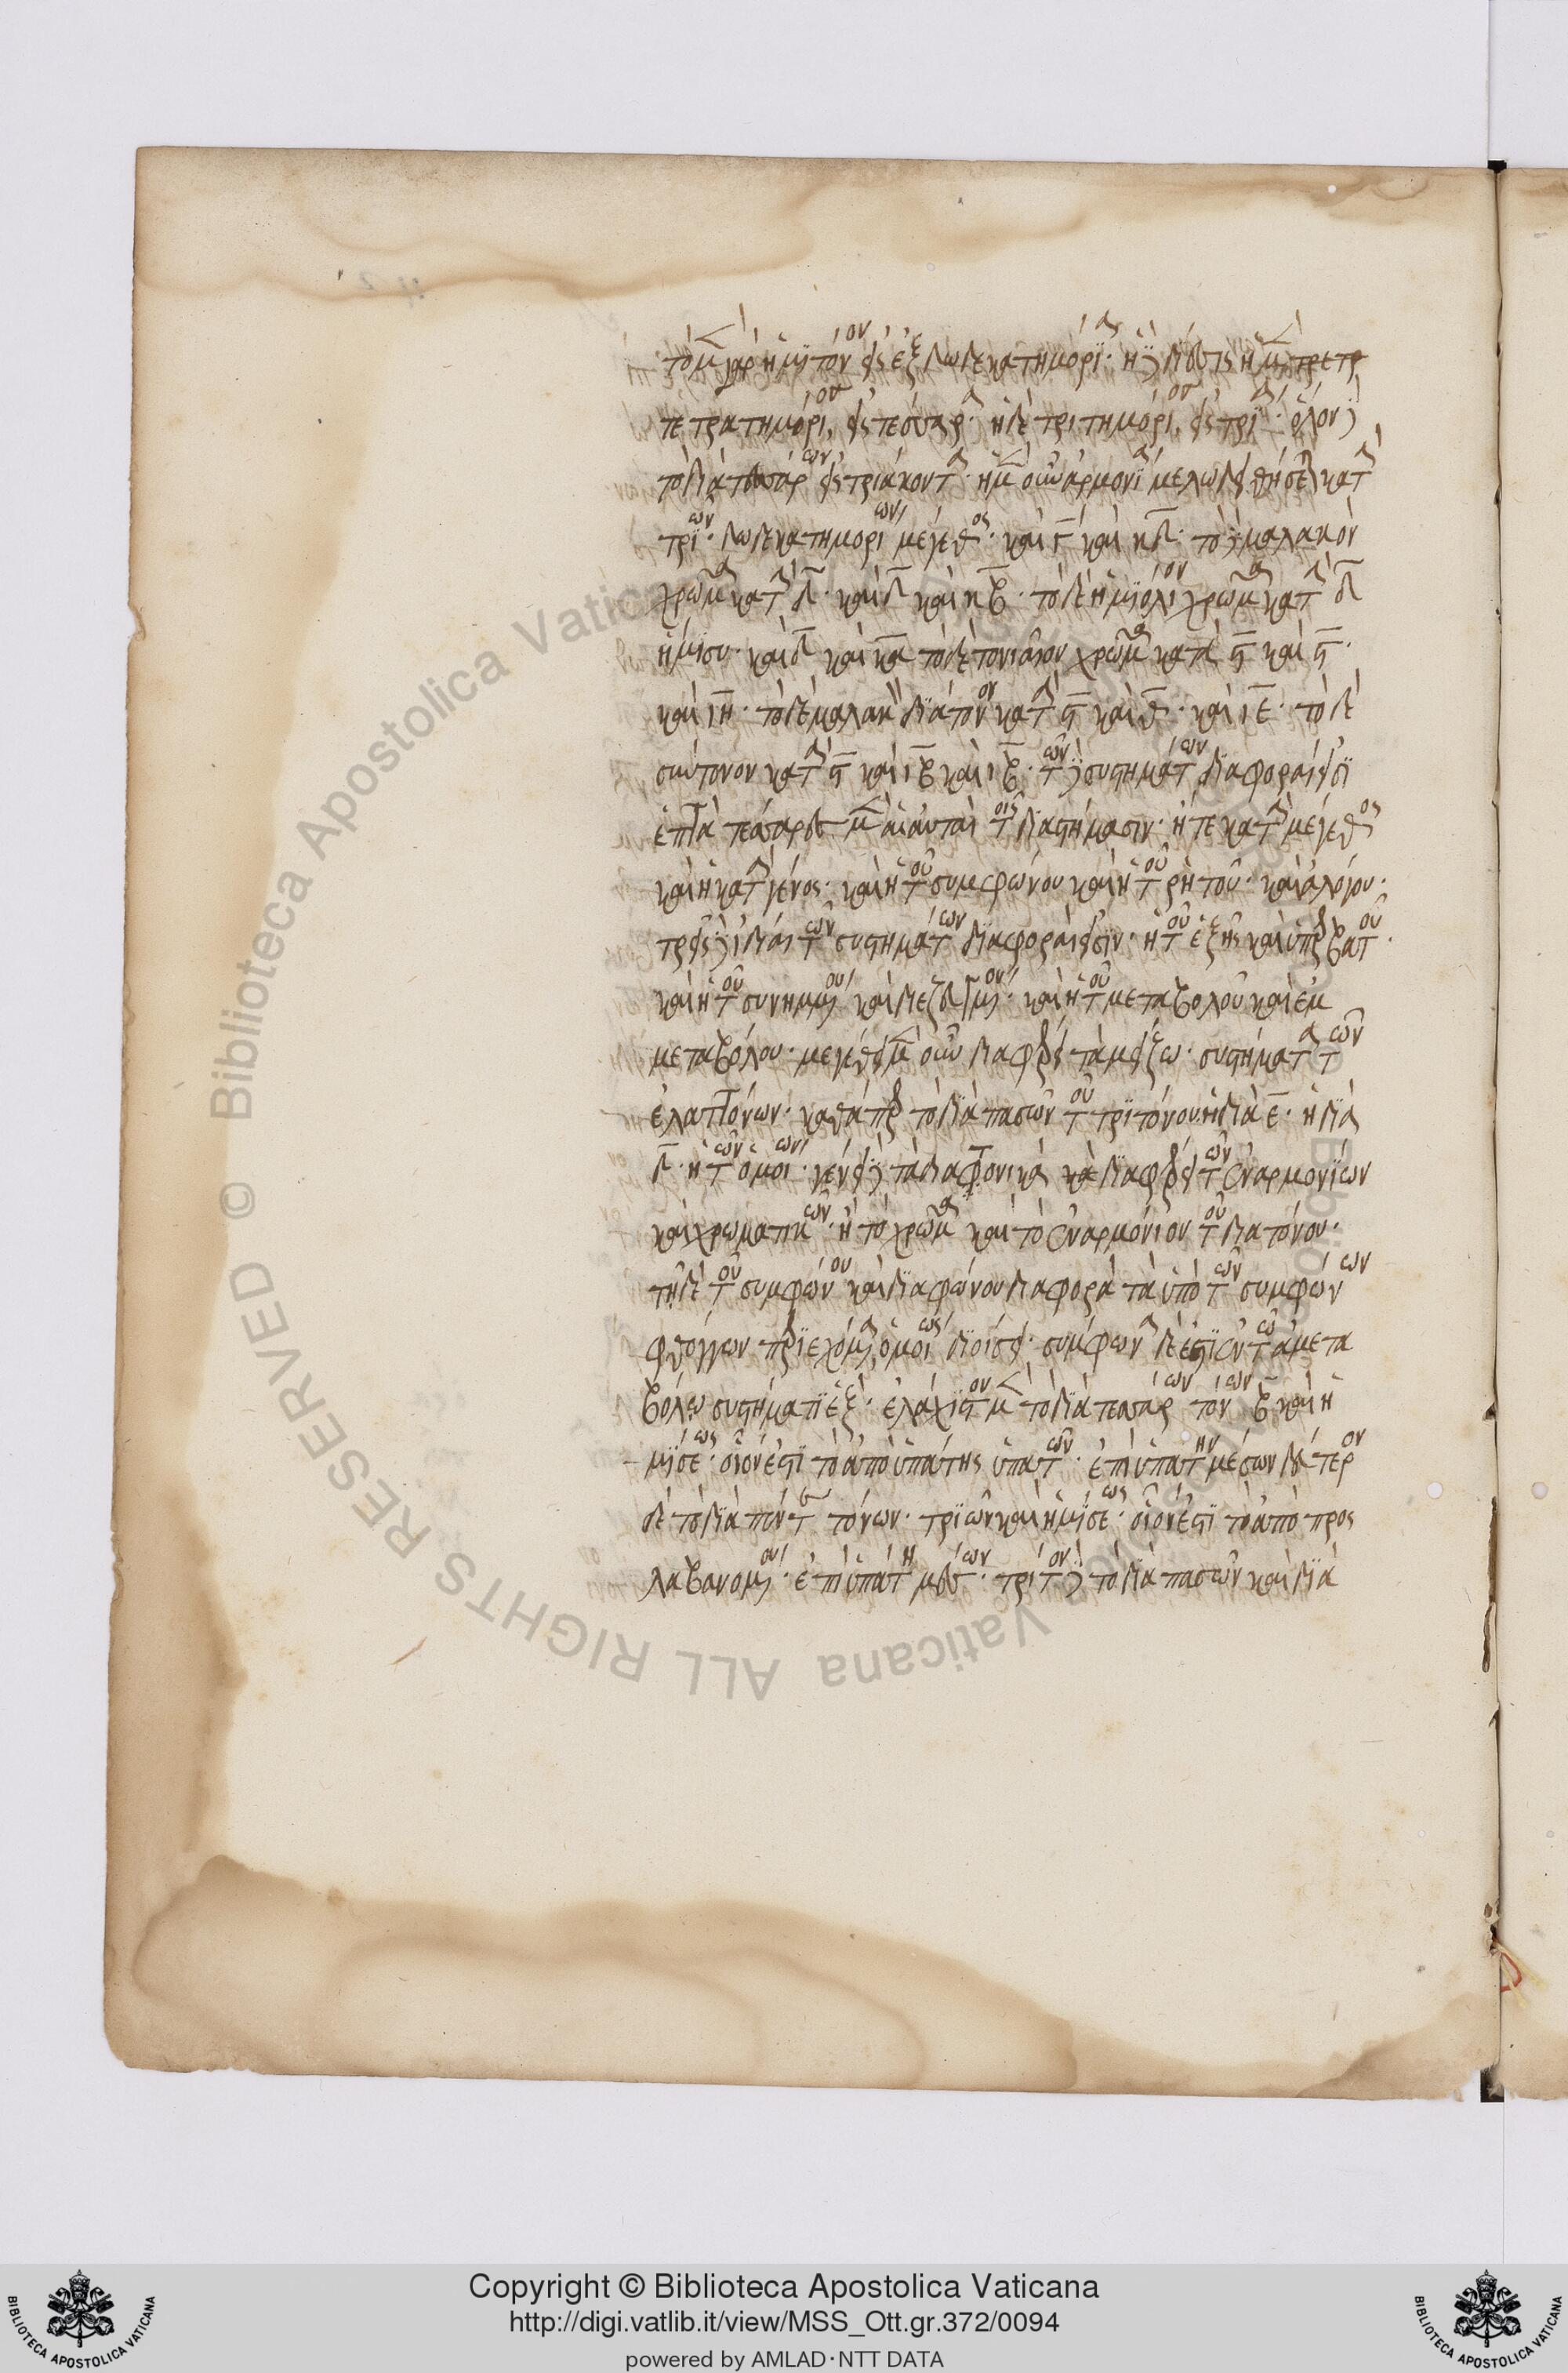 τὸ μὲν γὰρ ἡμιτόνιον εἰς ἓξ δωδεκατημόρια· ἡ δὲ δίεσις ἡ μὲν τρετρ
τετρατημόριος εἰς τέσσαρα· ἡ δὲ τριτημόριος εἰς τρία· ὅλον δὲ
τὸ διὰ τεσσάρων εἰς τριάκοντα· ἡ μὲν οὖν ἁρμονία μελωδηθήσεται κατὰ
τριῶν· δωδεκατημορίων μέγεθος· καὶ γ καὶ κδ· τὸ δὲ μαλακὸν
χρῶμα κατὰ δ· καὶ δ καὶ κβ· τὸ δὲ ἡμιόλιον χρῶμα κατὰ δ
ἥμισυ· καὶ δ καὶ κα τὸ δὲ τονιαῖον χρῶμα κατὰ ς καὶ ς·
καὶ ιη· τὸ δὲ μαλακὸν διάτονον κατὰ ς καὶ θ· καὶ ιε· τὸ δὲ
σύντονον κατὰ ς καὶ ιβ καὶ ιβ· τῶν δὲ συστημάτων διαφοραί εἰσι
ἑπτὰ τέσσαρες μὲν αἱ αὐταὶ τοῖς διαστήμασιν· ἥ τε κατὰ μέγεθος
καὶ ἡ κατὰ γένος· καὶ ἡ τοῦ συμφώνου καὶ ἡ τοῦ ῥητοῦ· καὶ ἀλόγου·
τρεῖς δὲ ἴδιαι τῶν συστημάτων διαφοραί εἰσιν· ἡ τοῦ ἑξῆς καὶ ὑπερβατοῦ·
καὶ ἡ τοῦ συνημμένου καὶ διεζευγμένου· καὶ ἡ τοῦ μεταβόλου καὶ ἐμ
μεταβόλου· μεγέθει μὲν οὖν διαφέρει τὰ μείζω· συστήματα τῶν
ἐλαττόνων· καθάπερ τὸ διὰ πασῶν τοῦ τριτόνου ἢ διὰ ε· ἢ διὰ
δ· ἢ τῶν ὁμοίων· γένει δὲ τὰ διατονικὰ κὰ διαφέρει τῶν ἐναρμονίων
καὶ χρωματικῶν· ἢ τὸ χρῶμα καὶ τὸ ἐναρμόνιον τοῦ διατόνου·
τῇ δὲ τοῦ συμφώνου καὶ διαφώνου διαφορᾷ τὰ ὑπὸ τῶν συμφώνων
φθόγγων περιεχόμενα ὁμοίως διοίσει· σύμφωνα δέ ἐστι ἐν τῷ ἀμετα
βόλῳ συστήματι ἕξ· ἐλάχιστον μὲν τὸ διὰ τεσσάρων τόνων β καὶ ἡ
μίσεως· οἷόν ἐστι τὸ ἀπὸ ὑπάτης ὑπατῶν· ἐπὶ ὑπάτην μέσων δεύτερον
δὲ τὸ διὰ πέντε τόνων· τριῶν καὶ ἡμίσεως· οἷόν ἐστι τὸ ἀπὸ προς
λαβανομένου· ἐπὶ ὑπάτη μέσων· τρίτον δὲ τὸ διὰ πασῶν καὶ διὰ
Copyright © Biblioteca Apostolica Vaticana
http://digi.vatlib.it/view/MSS_Ott.gr.372/0094
powered by AMLAD·NTT DATA